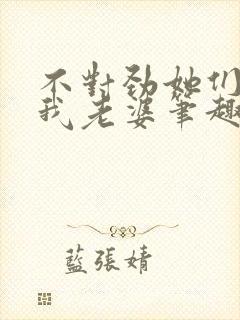 不對勁她们
我老婆筆趣
藍張婧